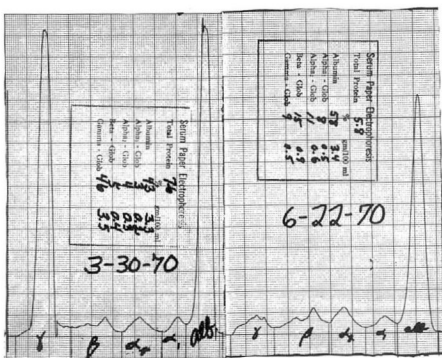 Serum Paper Electrophoresis
Total Protein 7.6
% gm/100 ml
Albumin 43 3.3
Alpha₁ - Glob 3 0.2
Alpha₂ - Glob 4 0.3
Beta - Glob 5 0.4
Gamma - Glob 46 3.5
3-30-70
γ β α₂ α₁ alb.
Serum Paper Electrophoresis
Total Protein 5.8
% gm/100 ml
Albumin 58 3.4
Alpha₁ - Glob 8 0.5
Alpha₂ - Glob 11 0.6
Beta - Glob 15 0.9
Gamma - Glob 9 0.5
6-22-70
γ β α₂ α₁ alb